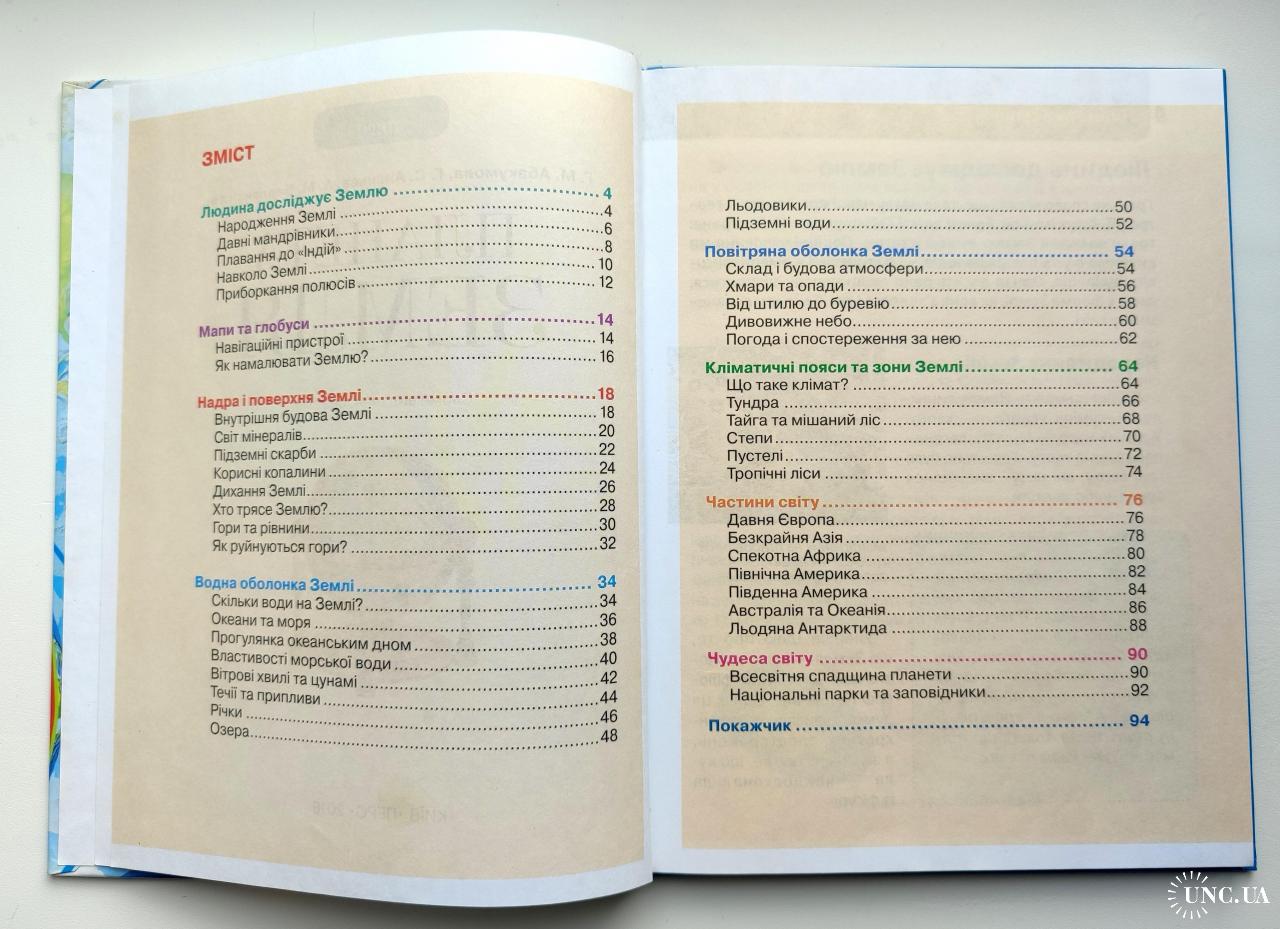 ЗМІСТ
Людина досліджує Землю ........ 4
Народження Землі ........ 4
Давні мандрівники ........ 6
Плавання до «Індій» ........ 8
Навколо Землі ........ 10
Приборкання полюсів ........ 12
Мапи та глобуси ........ 14
Навігаційні пристрої ........ 14
Як намалювати Землю? ........ 16
Надра і поверхня Землі ........ 18
Внутрішня будова Землі ........ 18
Світ мінералів ........ 20
Підземні скарби ........ 22
Корисні копалини ........ 24
Дихання Землі ........ 26
Хто трясе Землю? ........ 28
Гори та рівнини ........ 30
Як руйнуються гори? ........ 32
Водна оболонка Землі ........ 34
Скільки води на Землі? ........ 34
Океани та моря ........ 36
Прогулянка океанським дном ........ 38
Властивості морської води ........ 40
Вітрові хвилі та цунамі ........ 42
Течії та припливи ........ 44
Річки ........ 46
Озера ........ 48
Льодовики ........ 50
Підземні води ........ 52
Повітряна оболонка Землі ........ 54
Склад і будова атмосфери ........ 54
Хмари та опади ........ 56
Від штилю до буревію ........ 58
Дивовижне небо ........ 60
Погода і спостереження за нею ........ 62
Кліматичні пояси та зони Землі ........ 64
Що таке клімат? ........ 64
Тундра ........ 66
Тайга та мішаний ліс ........ 68
Степи ........ 70
Пустелі ........ 72
Тропічні ліси ........ 74
Частини світу ........ 76
Давня Європа ........ 76
Безкрайня Азія ........ 78
Спекотна Африка ........ 80
Північна Америка ........ 82
Південна Америка ........ 84
Австралія та Океанія ........ 86
Льодяна Антарктида ........ 88
Чудеса світу ........ 90
Всесвітня спадщина планети ........ 90
Національні парки та заповідники ........ 92
Покажчик ........ 94
UNC.UA